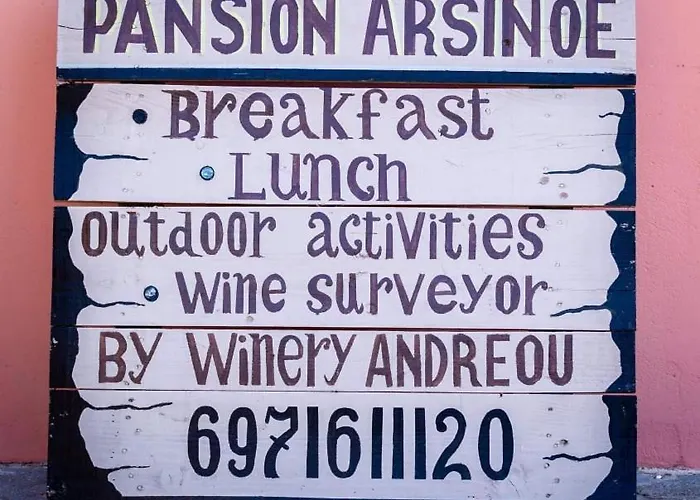 PANSION ARSINOE
Breakfast
Lunch
outdoor activities
wine surveyor
By Winery ANDREOU
6971611120